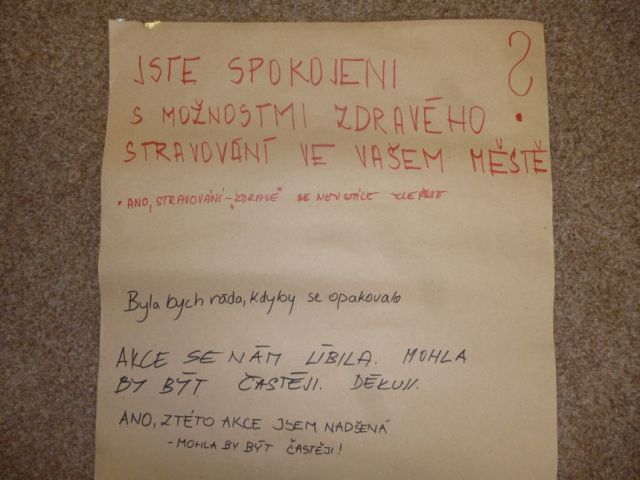 JSTE SPOKOJENI ?
S MOŽNOSTMI ZDRAVÉHO
STRAVOVÁNÍ VE VAŠEM MĚSTĚ
• ANO, STRAVOVÁNÍ - „ZDRAVÉ" SE NEUSTÁLE ZLEPŠUJE
Byla bych ráda, kdyby se opakovalo
AKCE SE NÁM LÍBILA. MOHLA
BY BÝT ČASTĚJI. DĚKUJI.
ANO, Z TÉTO AKCE JSEM NADŠENÁ
- MOHLA BY BÝT ČASTĚJI!